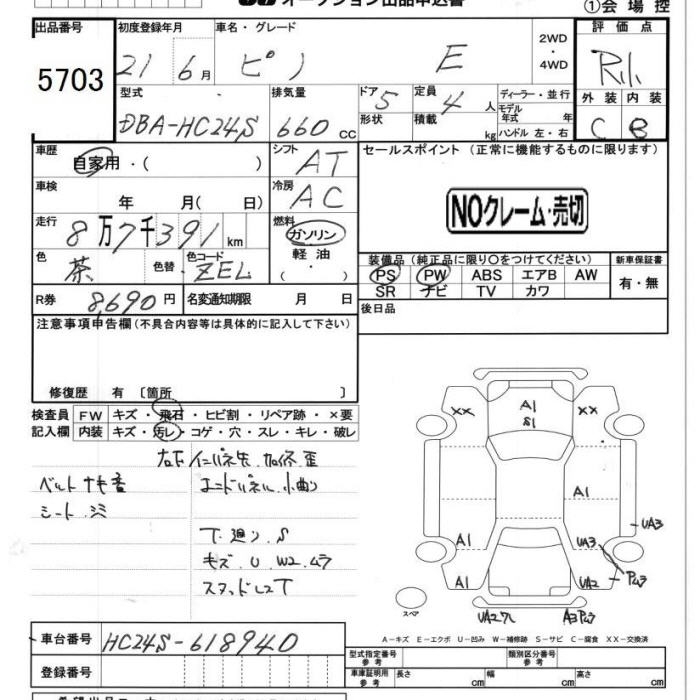 オークション出品申込書
①会場控
出品番号 初度登録年月 車名・グレード 2WD・4WD 評価点
5703 21 6月 ピノ E
型式 排気量 ドア 定員 ディーラー・並行 外装 内装
DBA-HC24S 660cc 5 4人 モデル年式 年 C B
形状 積載 kg ハンドル 左・右
車歴 シフト セールスポイント (正常に機能するものに限ります)
自家用・( ) AT
車検 冷房
年 月( 日) AC
NOクレーム・売切
走行 燃料
8万7千391km ガソリン
軽油
色 色替 色コード 装備品 (純正品に限り○をつけてください) 新車保証書
茶 ZEL PS PW ABS エアB AW 有・無
SR ナビ TV カワ
R券 8,690円 名変通知期限 月 日 後日品
注意事項申告欄 (不具合内容等は具体的に記入して下さい)
修復歴 有 〔箇所 〕
検査員 FW キズ・飛石・ヒビ割・リペア跡・×要
記入欄 内装 キズ・汚レ・コゲ・穴・スレ・キレ・破レ
シート シミ
下廻り S
キズ U W2 ムラ
XX A1 S1 XX
A1
UA3
A1 UA3
A1 UA2
スペア
A-キズ E-エクボ U-凹み W-補修跡 S-サビ C-腐食 XX-交換済
車台番号 HC24S-618940
型式指定番号 参考 類別区分番号 参考
登録番号 車庫証明用 参考 長さ cm 幅 cm 高さ cm